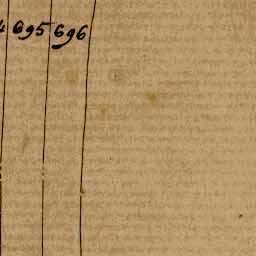 695 696